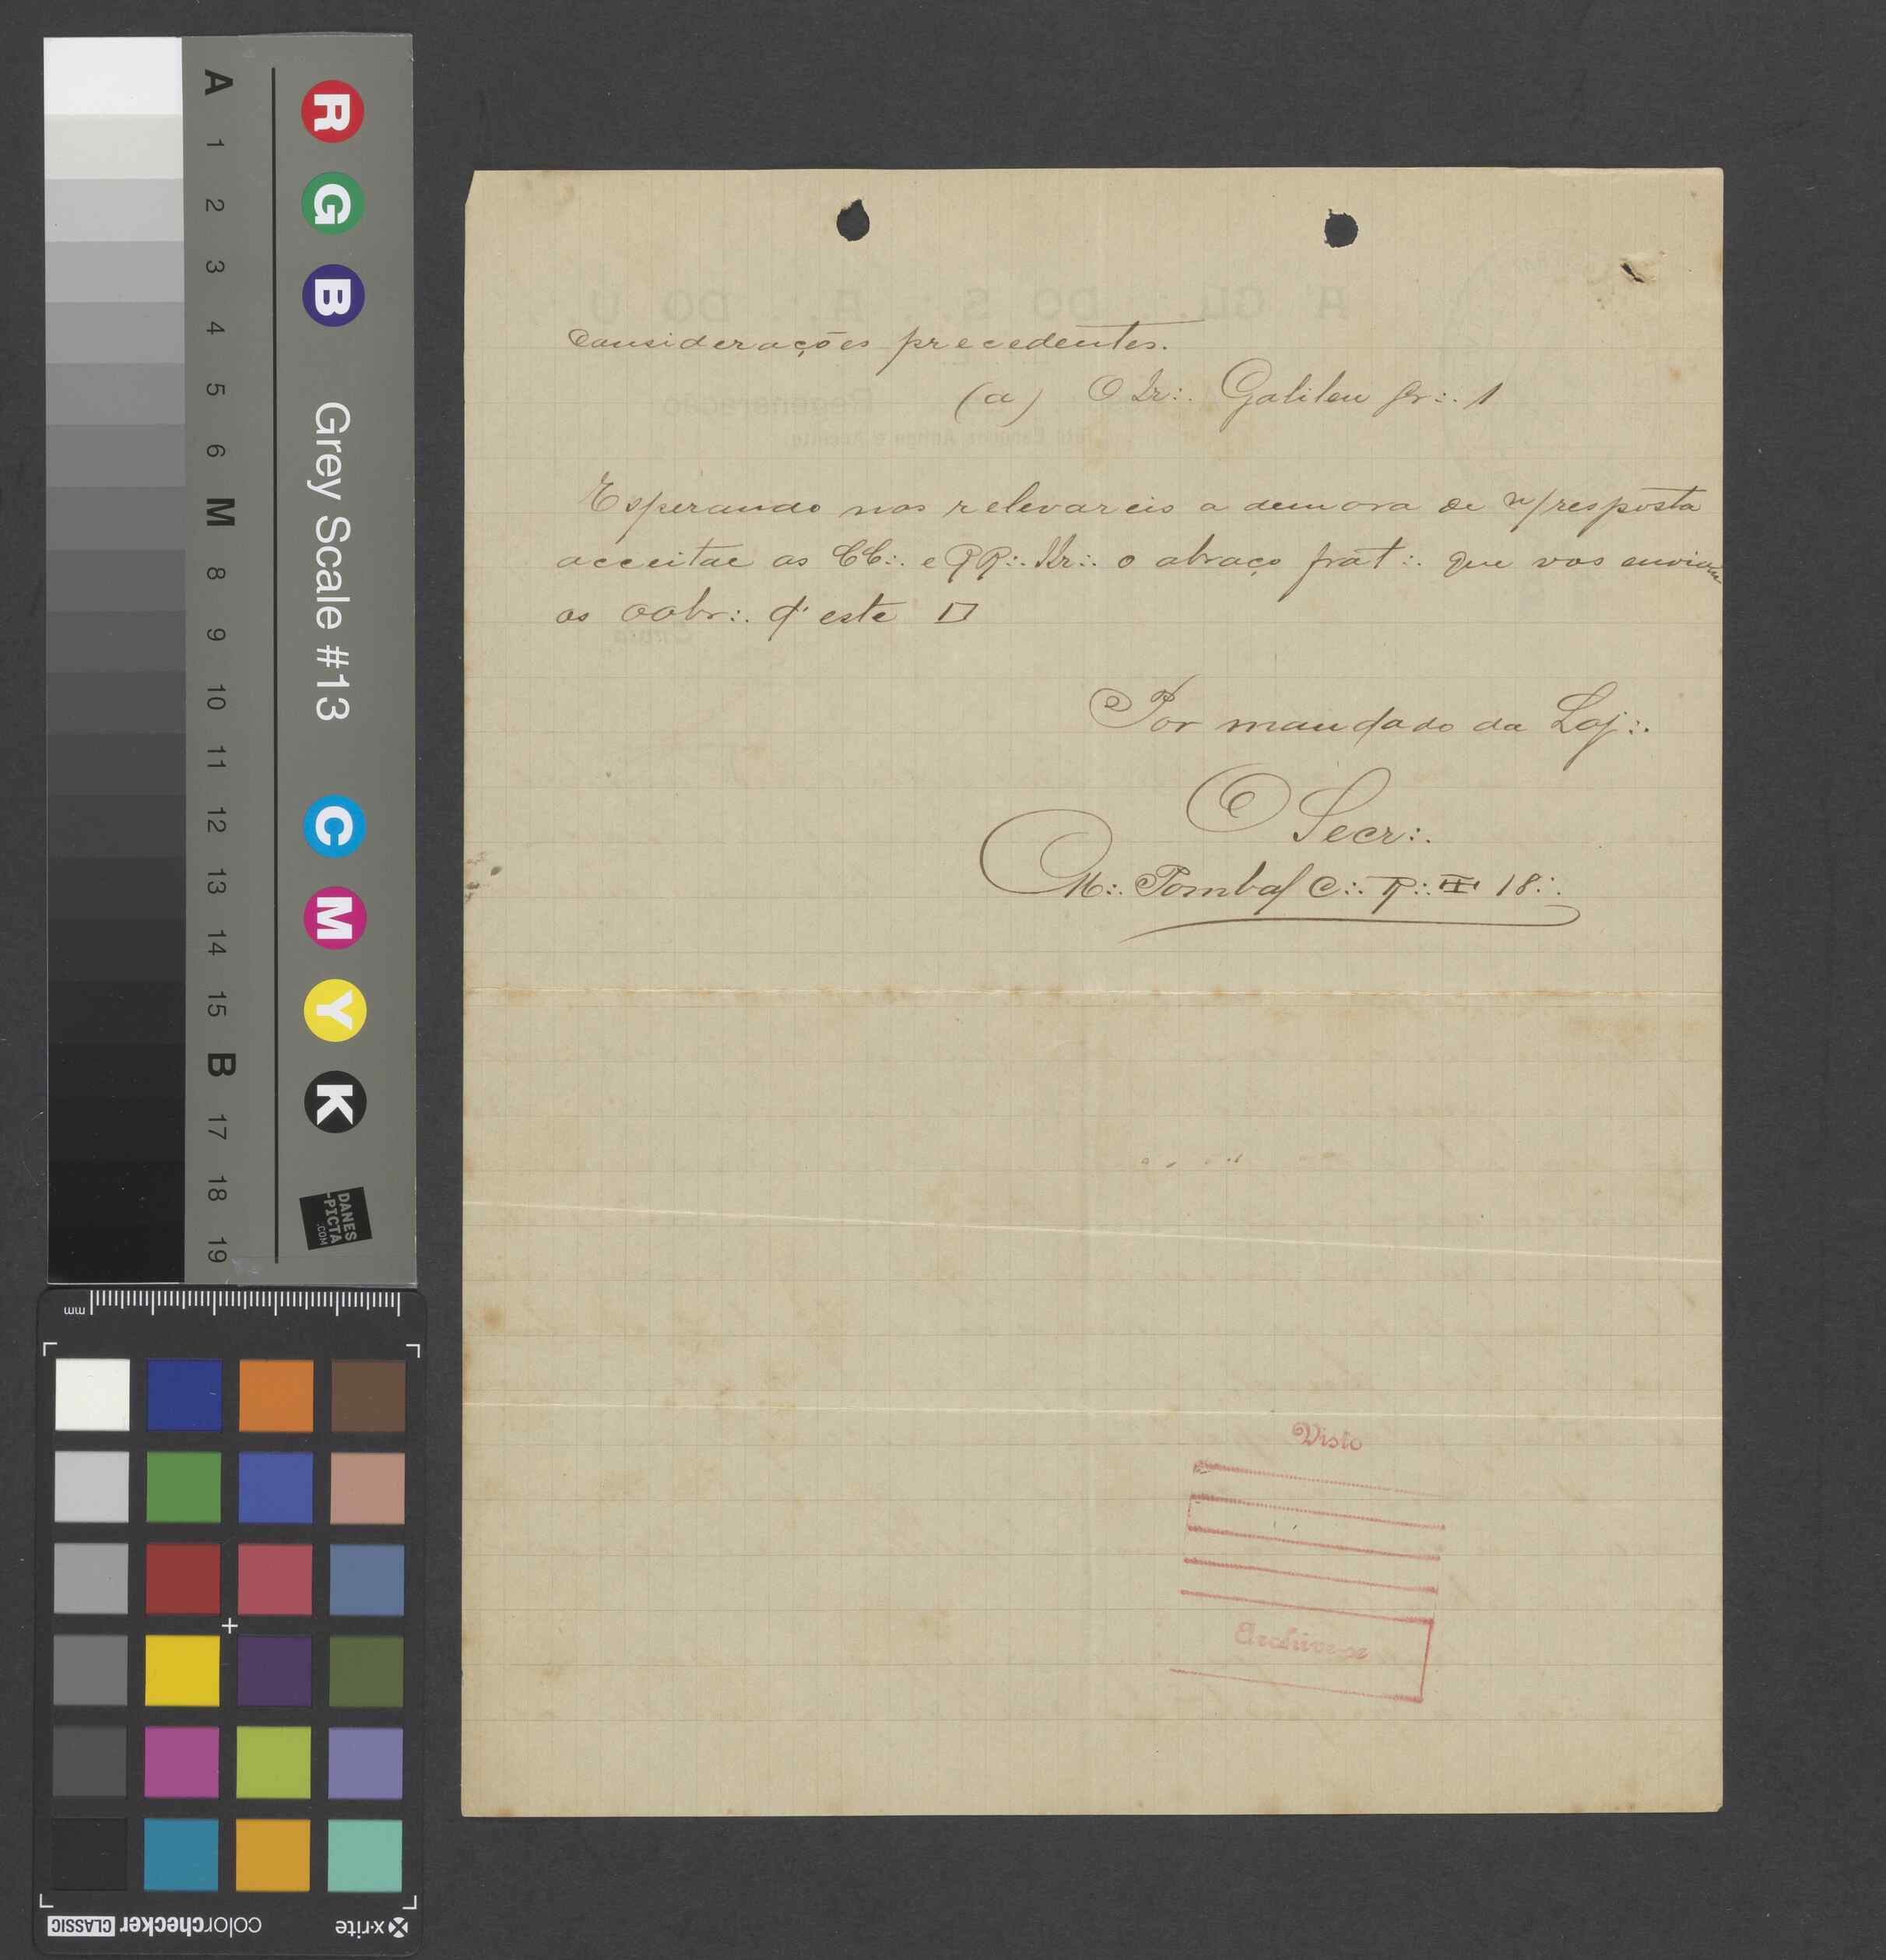 A 1 2 3 4 5 6 M 8 9 10 11 12 13 14 15 B 17 18 19
R G B Grey Scale #13 C M Y K
DANES
-PICTA
.COM
mm
colorchecker CLASSIC
x-rite
considerações precedentes.
(a) O Ir∴ Galileu gr∴ 1
Esperando nos relevareis a demora de n/resposta
acceitae as CC∴ e RR∴ IIr∴ o abraço frat∴ que vos enviam
os oobr∴ d'este □
Por mandado da Loj∴
O Secr∴
M∴ Pombal C∴ R∴ 18∴
Visto
Archive-se